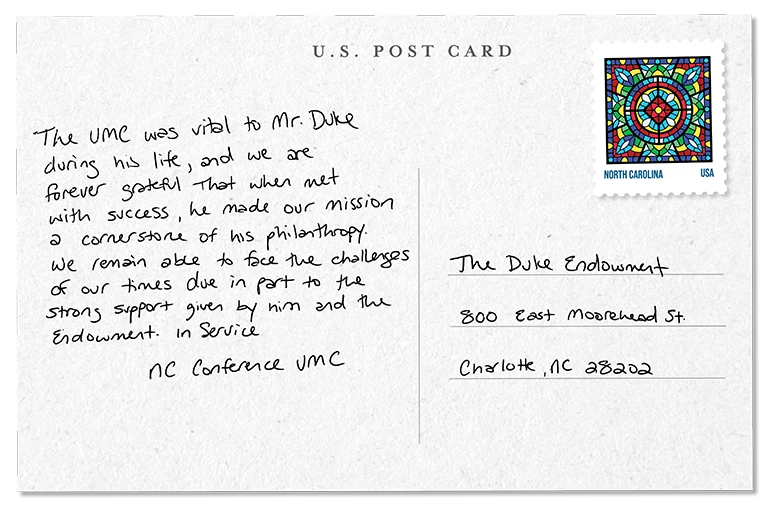 U.S. POST CARD
The UMC was vital to Mr. Duke
during his life, and we are
forever grateful That when met
with success, he made our mission
a cornerstone of his philanthropy.
We remain able to face the challenges
of our times due in part to the
strong support given by him and the
Endowment. In Service
NC Conference UMC
NORTH CAROLINA USA
The Duke Endowment
800 East Moorehead St.
Charlotte, NC 28202